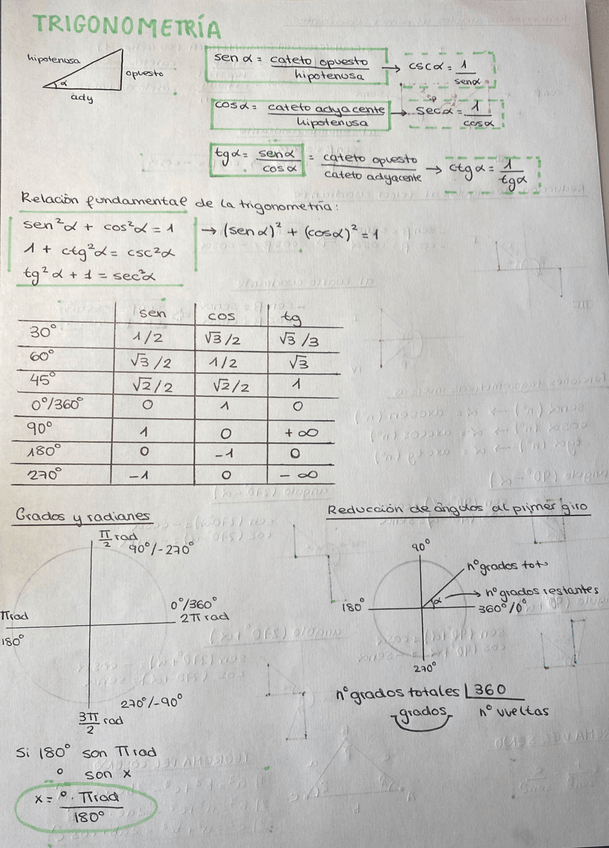 TRIGONOMETRÍA
hipotenusa
opuesto
α
ady
sen α = cateto opuesto / hipotenusa → csc α = 1 / sen α
cos α = cateto adyacente / hipotenusa → sec α = 1 / cos α
tg α = sen α / cos α = cateto opuesto / cateto adyacente → ctg α = 1 / tg α
Relación fundamental de la trigonometría:
sen²α + cos²α = 1 → (sen α)² + (cos α)² = 1
1 + ctg²α = csc²α
tg²α + 1 = sec²α
sen cos tg
30° 1/2 √3/2 √3/3
60° √3/2 1/2 √3
45° √2/2 √2/2 1
0°/360° 0 1 0
90° 1 0 +∞
180° 0 -1 0
270° -1 0 -∞
Grados y radianes
π/2 rad
90°/-270°
0°/360°
2π rad
π rad
180°
270°/-90°
3π/2 rad
Si 180° son π rad
° son x
x = ° · π rad / 180°
Reducción de ángulos al primer giro
90°
nº grados tot
α
→ nº grados restantes
180°
360°/0°
270°
nº grados totales | 360
grados nº vueltas